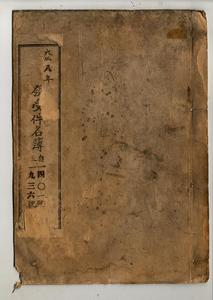 大正五年
發受件名簿
自一四〇一號
至一九三六號